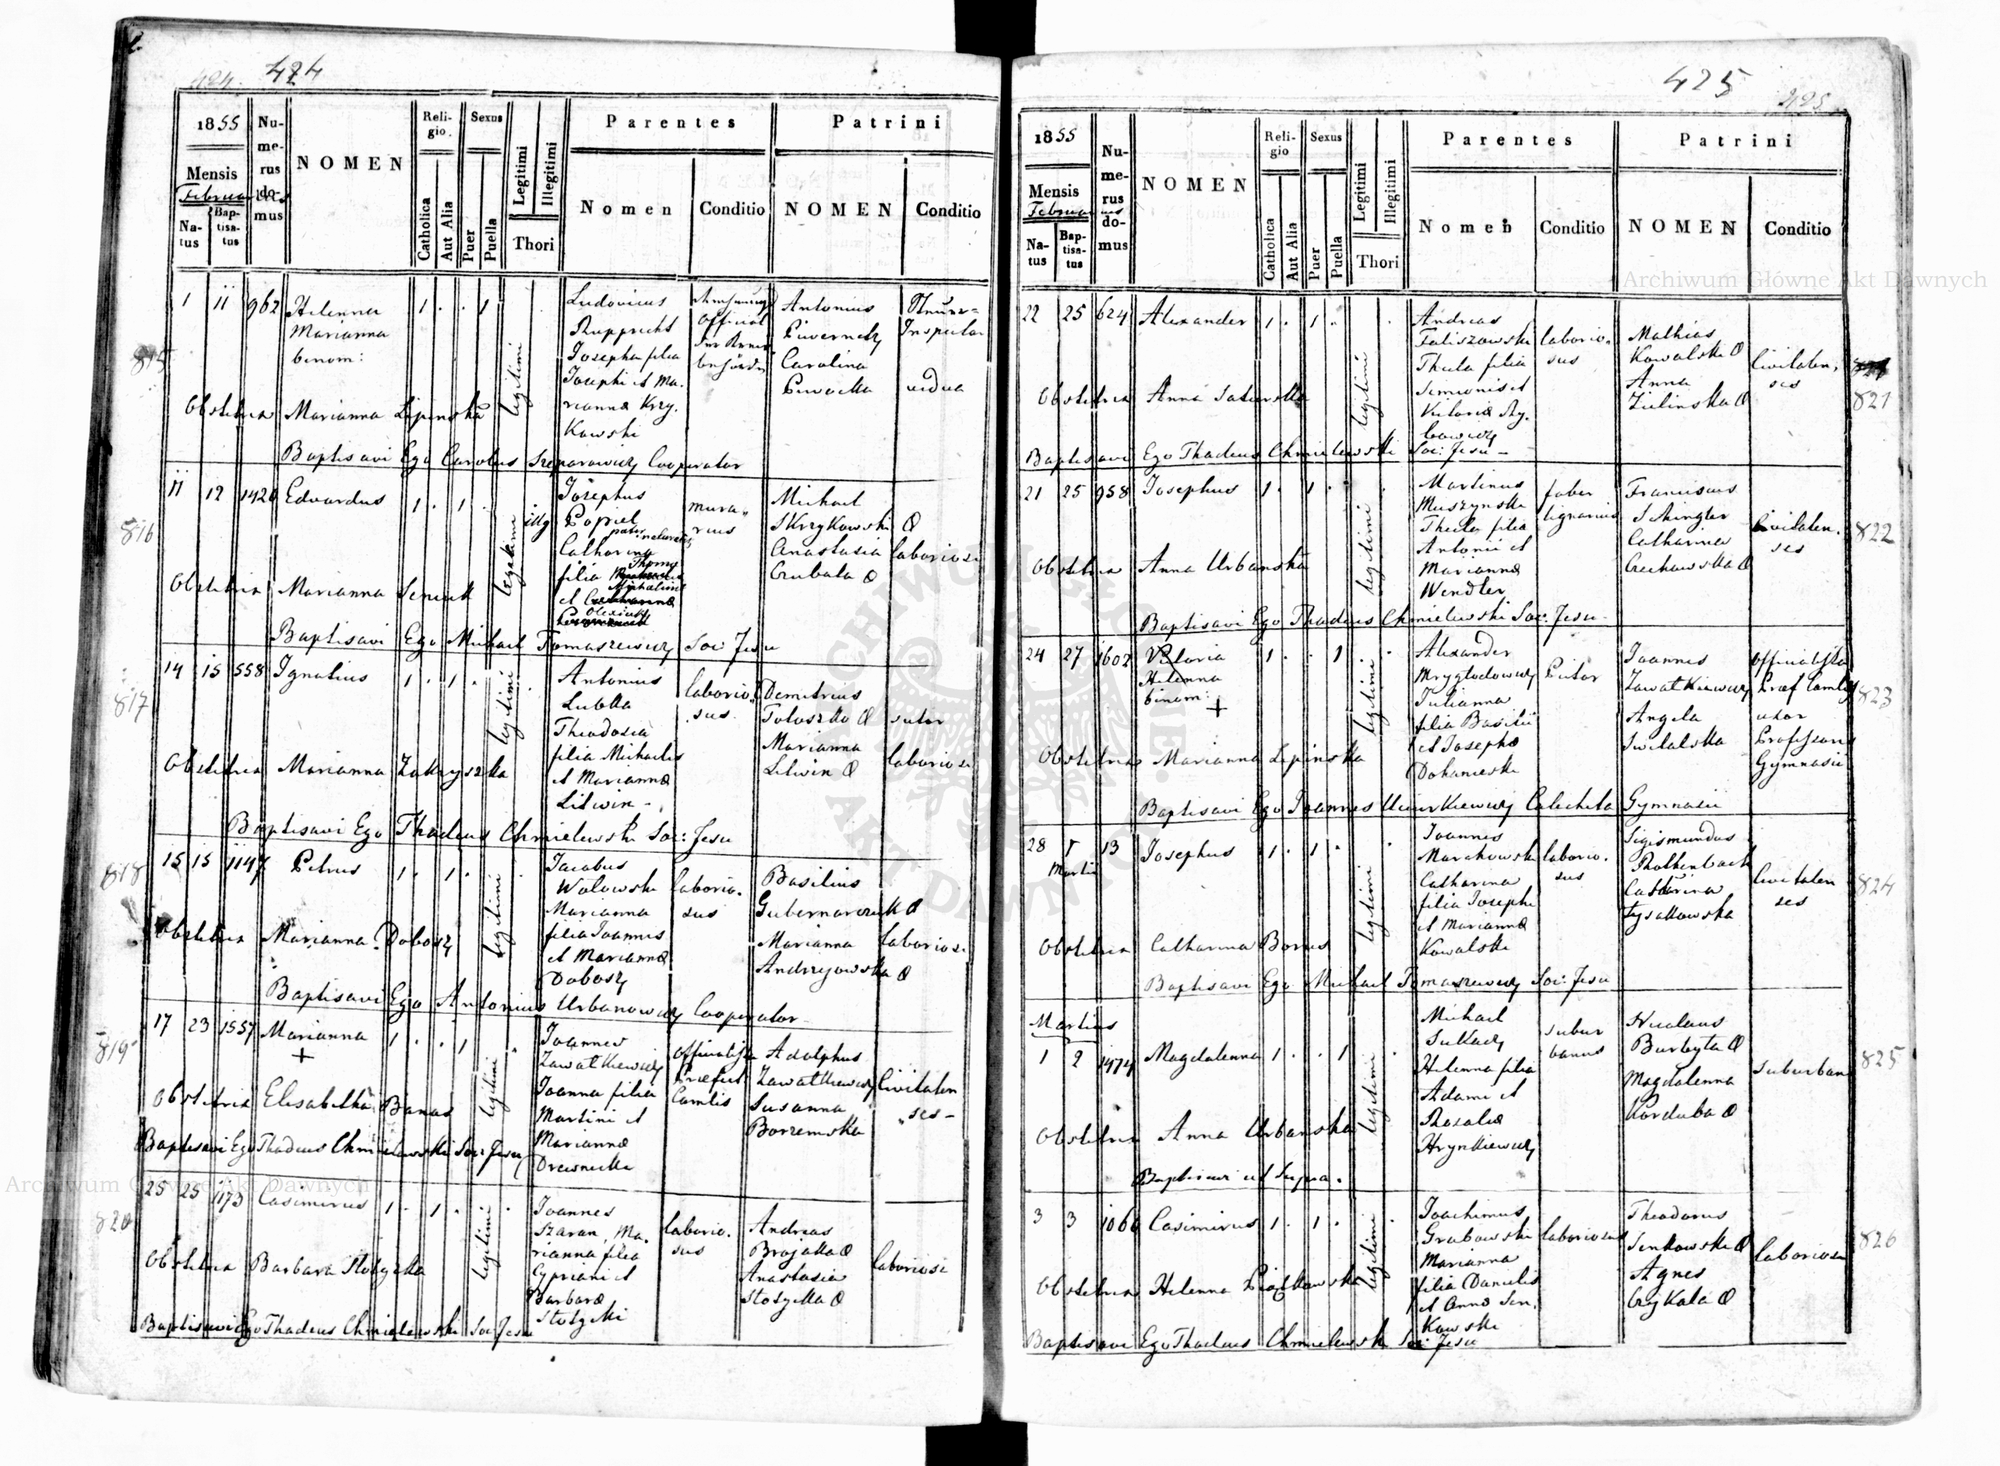 424
1855
Mensis
Februarius
Natus
Baptisatus
Numerus domus
NOMEN
Religio
Catholica
Aut Alia
Sexus
Puer
Puella
Legitimi
Illegitimi
Thori
Parentes
Nomen
Conditio
Patrini
NOMEN
Conditio
815
1 11 962 Helenna
Marianna
binom:
1 . . 1
legitimi
Ludovicus
Rupprecht
Josepha filia
Josephi et Ma-
rianna Krzy-
Kowski
Official
Antonius
Carolina
Inspector
vidua
Obstetrix Marianna Lipinska
Baptisavi Ego Carolus Szeparowicz Cooperator
816
11 12 1420 Edvardus
1 . 1 .
illeg
legitimi
Josephus
Popiel
pater naturalis
Catharina
filia Thoma
et
mura-
rius
Michael
Skrzykowski
Anastasia
Czubata
laboriosi
Obstetrix Marianna Seniuk
Baptisavi Ego Michael Tomaszewicz Soc: Jesu
817
14 15 558 Ignatius
1 . 1 .
legitimi
Antonius
Lubka
Theodosia
filia Michaelis
et Marianna
Litwin -
laborio-
sus
Demetrius
Toloszko
Marianna
Litwin
sutor
laboriosi
Obstetrix Marianna Zakryszka
Baptisavi Ego Thadeus Chmielewski Soc: Jesu
818
15 15 1147 Petrus
1 . 1 .
legitimi
Jacobus
Wolowski
Marianna
filia Joannis
et Marianna
Dobosz
laborio-
sus
Basilius
Gubernarczuk
Marianna
Andrzejowska
laboriosi
Obstetrix Marianna Dobosz
Baptisavi Ego Antonius Urbanowicz Cooperator
819
17 23 1557 Marianna
1 . . 1
legitimi
Joannes
Zawatkiewicz
Joanna filia
Martini et
Marianna
Drewnicki
Adolphus
Zawatkiewicz
Susanna
Borzemska
Civitaten
ses -
Obstetrix Elisabetha Banas
Baptisavi Ego Thadeus Chmielewski Soc: Jesu
820
25 25 1173 Casimirus
1 . 1 .
legitimi
Joannes
Szaran, Ma-
rianna filia
Cypriani et
Barbara
Stotycki
laborio-
sus
Andreas
Brojakka
Anastasia
Stotycka
laboriosi
Obstetrix Barbara Stotyczka
Baptisavi Ego Thadeus Chmielewski Soc: Jesu
425
1855
Mensis
Februarius
Natus
Baptisatus
Numerus domus
NOMEN
Religio
Catholica
Aut Alia
Sexus
Puer
Puella
Legitimi
Illegitimi
Thori
Parentes
Nomen
Conditio
Patrini
NOMEN
Conditio
821
22 25 624 Alexander
1 . 1 .
legitimi
Andreas
Faliszowski
Thecla filia
Simeonis et
laborio-
sus
Mathias
Kowalski
Anna
Zielinska
Civitaten-
ses
Obstetrix Anna
Baptisavi Ego Thadeus Chmielewski Soc: Jesu -
822
21 25 958 Josephus
1 . 1 .
legitimi
Martinus
Muszynski
Thecla filia
Antoni et
Marianna
Wendler
faber
lignarius
Franciscus
Catharina
Czechowska
Civitaten-
ses
Obstetrix Anna Urbanska
Baptisavi Ego Thadeus Chmielewski Soc: Jesu
823
24 27 1602 Victoria
Helenna
binom:
1 . . 1
legitimi
Alexander
Mryglodowicz
Julianna
filia Basilii
et Josepha
Dohanieski
Joannes
Zawatkiewicz
Angela
Switalska
uxor
Professoris
Gymnasii
Obstetrix Marianna Lipinska
Baptisavi Ego Joannes Catecheta Gymnasii
824
28 13 Josephus
Martii
1 . 1 .
legitimi
Joannes
Marakowski
Catharina
filia Josephi
et Marianna
Kowalski
laborio-
sus
Sigismundus
Rothenbach
Catharina
Lysakowska
Civitaten
ses
Obstetrix Catharina Borus
Baptisavi Ego Michael Tomaszewicz Soc: Jesu
825
Martius
1 2 1474 Magdalenna
1 . . 1
legitimi
Michael
Helenna filia
Adami et
Rosalia
Hrynkiewicz
subur
banus
Nicolaus
Burbyta
Magdalenna
Korduba
suburbani
Obstetrix Anna Urbanska
Baptisavi ut supra.
826
3 3 1066 Casimirus
1 . 1 .
legitimi
Joachimus
Grabowski
Marianna
filia Danielis
et Anna Sen-
Kowski
laboriosus
Theodorus
Senkowski
Agnes
Czykala
laboriosi
Obstetrix Helenna Piatkowska
Baptisavi Ego Thadeus Chmielewski Soc: Jesu
Archiwum Główne Akt Dawnych
Archiwum Główne Akt Dawnych
ARCHIWUM GŁÓWNE AKT DAWNYCH